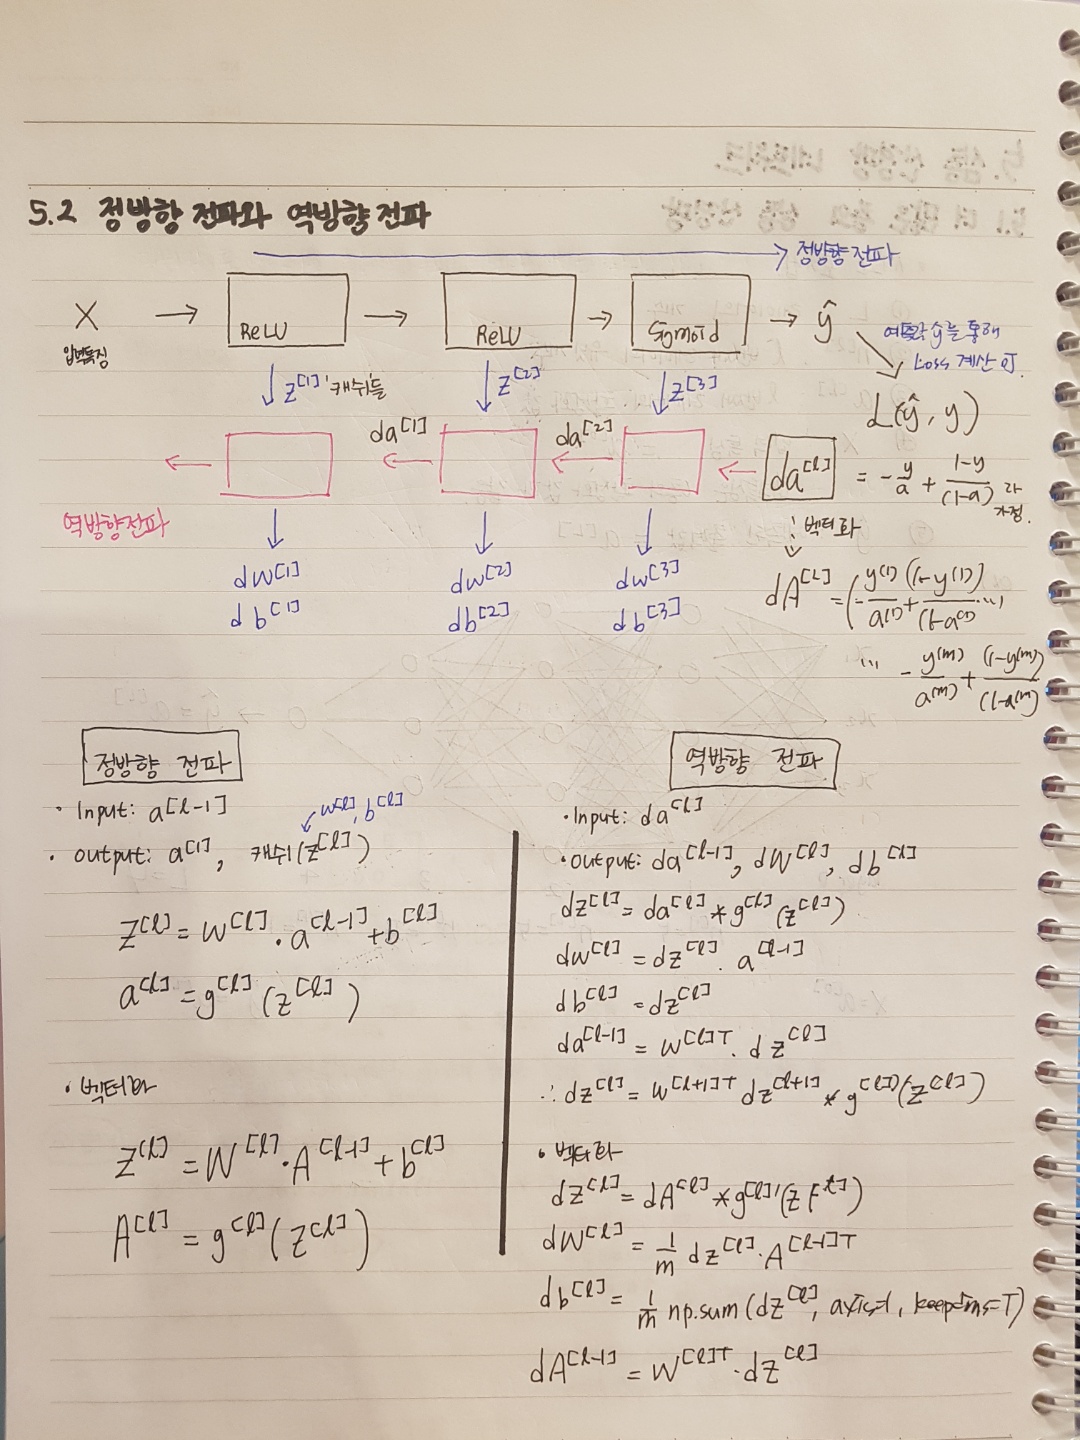 5.2 정방향 전파와 역방향 전파
정방향 전파
X → ReLU → ReLU → Sigmoid → ŷ
입력특징
ŷ을 통해
Loss 계산 可.
z[1] 캐쉬들 z[2] z[3]
L(ŷ, y)
da[1] da[2] da[l] = -y/a + (1-y)/(1-a) 라 가정.
역방향전파
벡터화
dw[1] dw[2] dw[3]
db[1] db[2] db[3]
dA[L] = (-y(1)/a(1) + (1-y(1))/(1-a(1) ...
... -y(m)/a(m) + (1-y(m))/(1-a(m))
정방향 전파
· Input: a[l-1]
w[l], b[l]
· output: a[l], 캐쉬(z[l])
z[l] = w[l] · a[l-1] + b[l]
a[l] = g[l](z[l])
· 벡터화
Z[l] = W[l] · A[l-1] + b[l]
A[l] = g[l](Z[l])
역방향 전파
· Input: da[l]
· output: da[l-1], dW[l], db[l]
dz[l] = da[l] * g[l](z[l])
dw[l] = dz[l] · a[l-1]
db[l] = dz[l]
da[l-1] = w[l]T · dz[l]
∴ dz[l] = w[l+1]T dz[l+1] * g[l])(z[l])
· 벡터화
dz[l] = dA[l] * g[l]'(z[l])
dW[l] = 1/m dz[l] · A[l-1]T
db[l] = 1/m np.sum(dz[l], axis=1, keepdims=T)
dA[l-1] = W[l]T · dz[l]